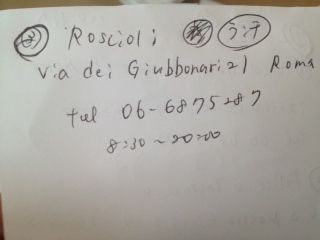 Roscioli ラ・テ
via dei Giubbonari 21 Roma
tel 06-6875287
8:30 ~ 20:00